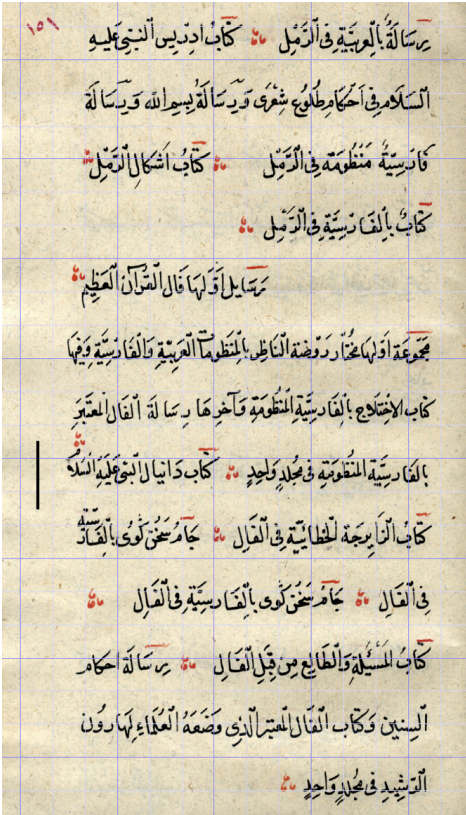 ١٥١
رسالة بالعربية في الرمل كتاب ادريس النبي عليه
السلام في احكام طلوع شعرى ورسالة بسم الله ورسالة
فارسية منظومة في الرمل كتاب اشكال الرمل
كتاب بالفارسية في الرمل
رسايل اولها فال القرآن العظيم
مجموعة اولها مختار روضة الناظر بالمنظومات العربية والفارسية وفيها
كتاب الاختلاج بالفارسية المنظومة وآخرها رسالة الفال المعتبر
بالفارسية المنظومة في مجلد واحد كتاب دانيال النبي عليه السلام
كتاب الزايرجة الخطائية في الفال جام سخن كوى بالفارسية
في الفال جام سخن كوى بالفارسية في الفال
كتاب المسئلة والطالع من قبل الفال رسالة احكام
السنين وكتاب الفال المعتبر الذي وضعه العلماء لهارون
الرشيد في مجلد واحد